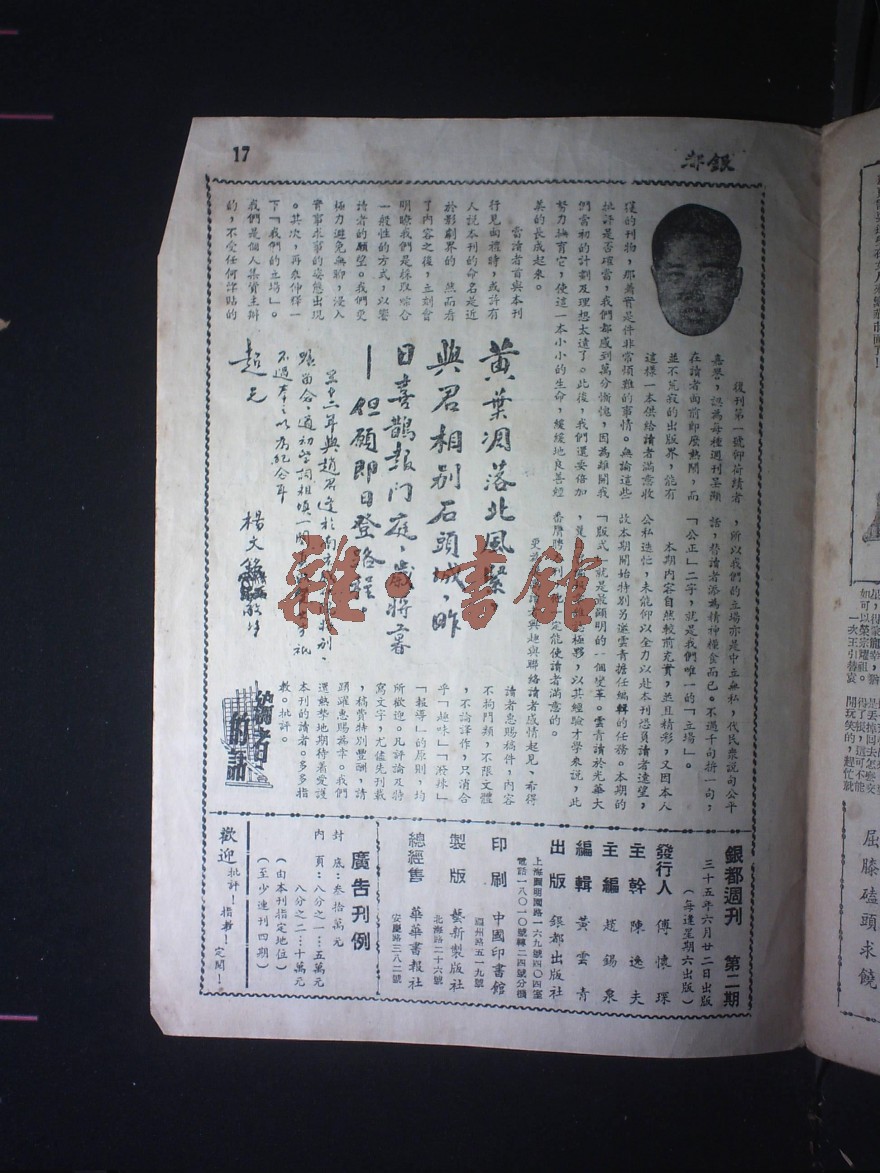 17
銀都
復刊第一號仰荷讀者
喜譽，認為每種週刊呈顯
在讀者面前卽麼熱鬧，而
並不荒寂的出版界，能有
這樣一本供給讀者滿意收
獲的刊物，那着實是件非常煩難的事情。無論這些
批評是否確當，我們都感到萬分慚愧，因為離開我
們當初的計劃及理想太遠了。此後，我們還要倍加
努力撫育它，使這一本小小的生命，緩緩地良善健
美的長成起來。
當讀者首與本刊
行見面禮時，或許有
人說本刊的命名是近
於影劇界的 然而看
了內容之後，立刻會
明瞭我們是採取綜合
一般性的方式，以饗
讀者的願望。我們更
極力避免無聊，浸入
實事求事的姿態出現
。其次，再來伸釋一
下「我們的立場」。
我們是個人集資主辦
的，不受任何津貼的
，所以我們的立場亦是中立無私，代民衆說句公平
話，替讀者添為精神糧食而已。不過千句拚一句：
「公正」二字，就是我們唯一的「立場」。
本期內容自然較前充實，並且精彩，又因本人
公私迭忙，未能仰以全力以赴本刊恐負讀者遠望，
故本期開始特別另邀雲青擔任編輯的任務。本期的
「版式」就是最顯明的一個變革。雲青讀於光華大
，以其經驗才學來說，此
定能使讀者滿意的。
興趣與聯絡讀者感情起見、希得
讀者惠賜稿件，內容
不拘門類，不限文體
，不論譯作，只消合
乎「趣味」「潑辣」
「報導」的原則，均
所歡迎。凡評論及特
寫文字，尤儘先刊載
，稿費特別豐酬，請
踴躍惠賜為幸。我們
還熱摯地期待着愛護
本刊的讀者。多多指
教。批評。
編者的話
黃葉凋落北風緊，
與君相別石頭城，昨
日喜鵲報門庭，歲將暮
—但願卽日登路程。
楊文
雜·書館
銀都週刊 第二期
三十五年六月廿二日出版
（每逢星期六出版）
發行人 傅懷琛
主幹 陳逸夫
主編 趙錫泉
編輯 黃雲青
出版 銀都出版社
上海圓明園路一六九號四〇四室
電話一八〇一〇號轉二四號分機
印刷 中國印書館
福州路五一九號
製版 藝新製版社
北海路二十六號
總經售 華華書報社
安慶路三八二號
廣告刊例
封 底：叁拾萬元
內 頁：八分之一：五萬元
八分之二：十萬元
（由本刊指定地位）
（至少連刊四期）
歡迎批評！指教！定閱！
屈膝磕頭求饒